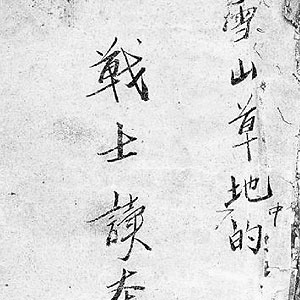 雪山草地的
中
戰士讀本